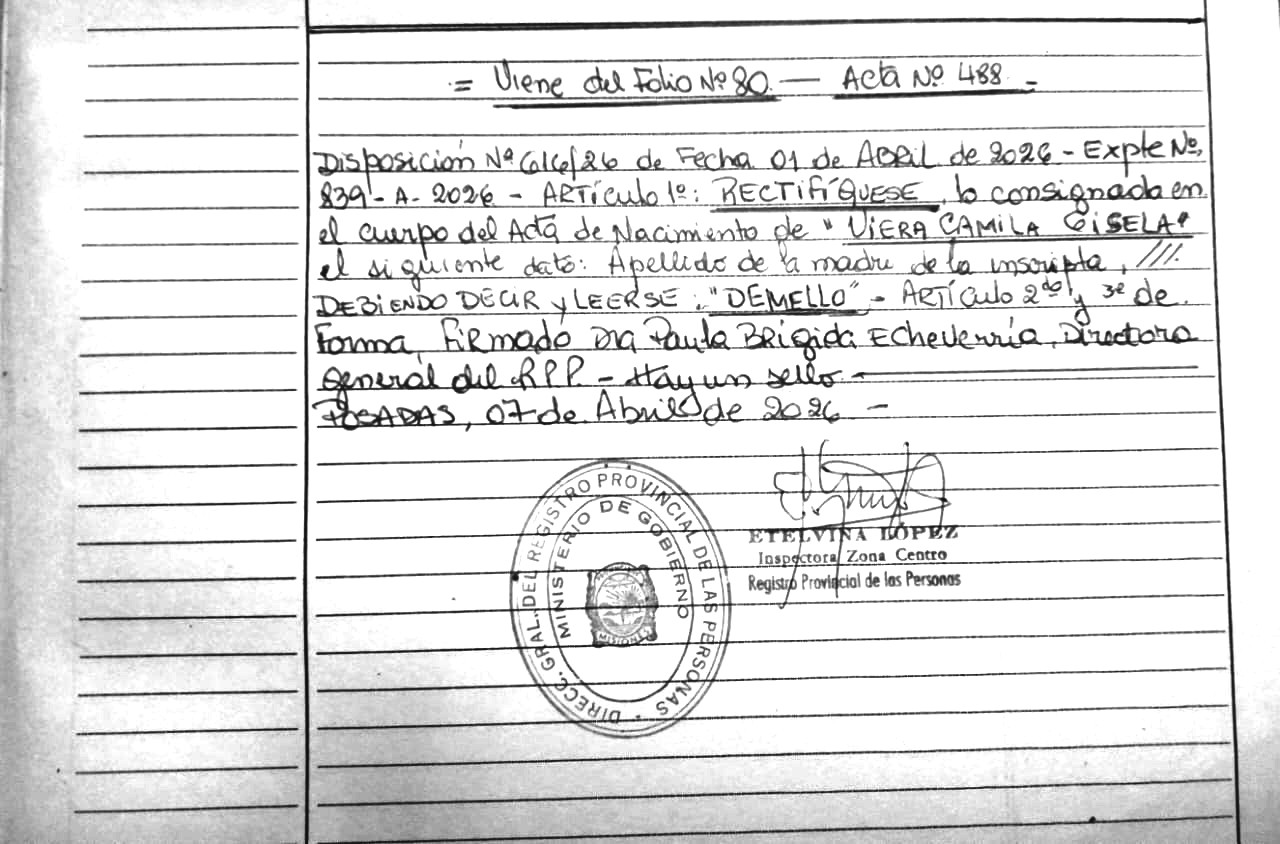 = Viene del Folio Nº 80 — Acta Nº 488 =
Disposición Nº 616/26 de Fecha 01 de ABRIL de 2026 - Expte Nº
839-A-2026 - ARTÍCULO 1º: RECTIFÍQUESE, lo consignada en
el cuerpo del Acta de Nacimiento de "VIERA CAMILA GISELA"
el siguiente dato: Apellido de la madre de la inscripta, ///.
DEBIENDO DECIR y LEERSE: "DEMELLO" - ARTÍCULO 2do y 3º de
Forma, FIRMADO DRA Paula BRígida Echeverría, Directora
general del RPP - Hay un sello -
POSADAS, 07 de Abril de 2026 -
DIRECC. GRAL. DEL REGISTRO PROVINCIAL DE LAS PERSONAS
MINISTERIO DE GOBIERNO
MISIONES
ETELVINA LÓPEZ
Inspectora Zona Centro
Registro Provincial de las Personas